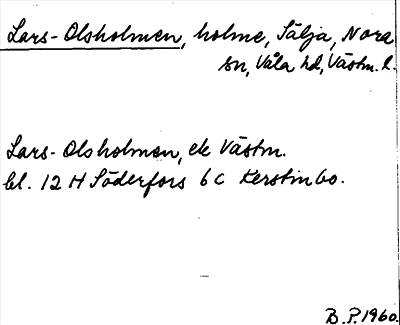 Lars-Olsholmen, holme, Sälja, Nora
sn, Våla hd, Västm. l.
Lars-Olsholmen, ek Västm.
bl. 12 H Söderfors 6 C Kerstinbo.
B.P. 1960.